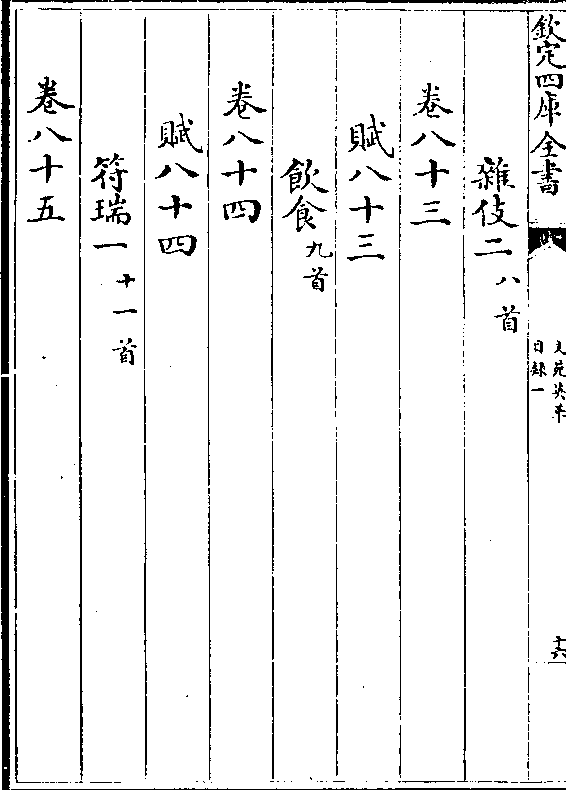 欽定四庫全書
文苑英華
目録一
十六
雜伎二八首
卷八十三
賦八十三
飲食九首
卷八十四
賦八十四
符瑞一十一首
卷八十五